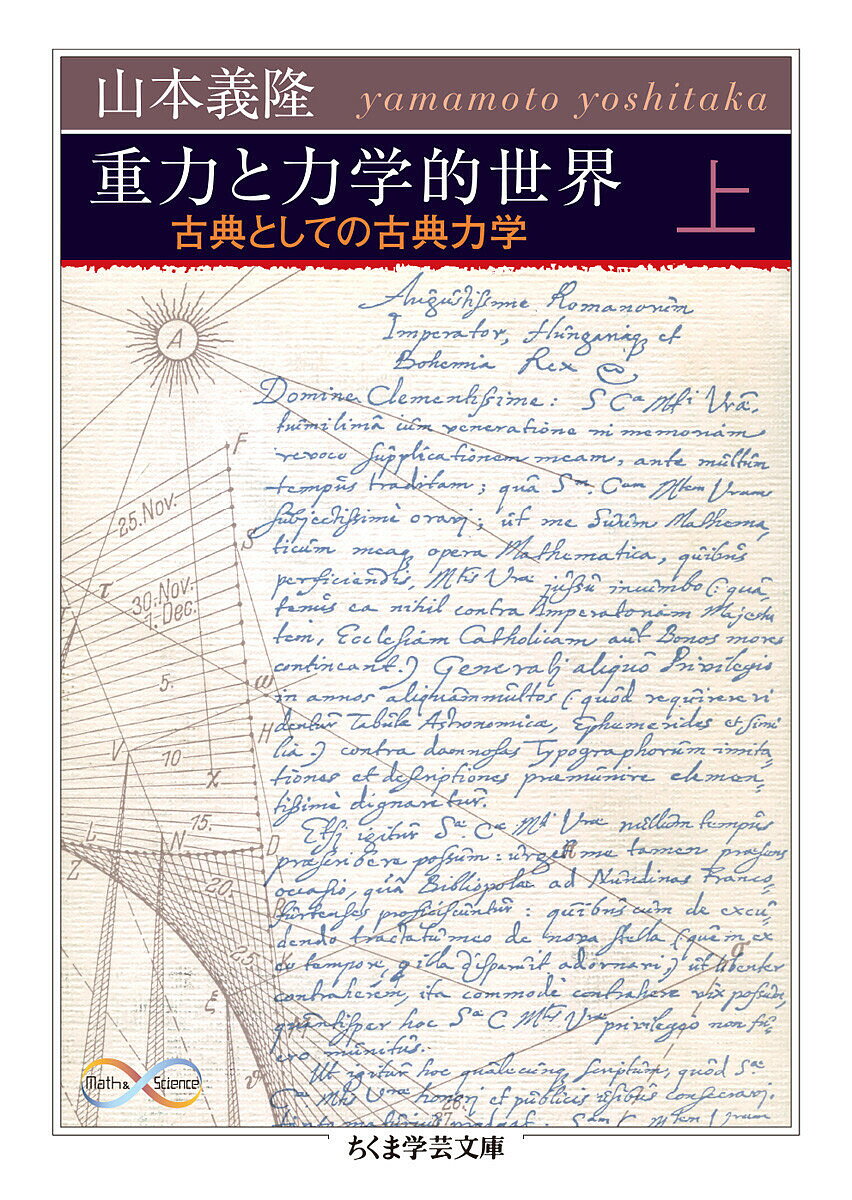 山本義隆 yamamoto yoshitaka
重力と力学的世界 上
古典としての古典力学
Augustissime Romanorum
Imperator, Hungariaq et
Bohemia Rex
Domine Clementissime: S Ca Mti Vrae,
humilima cum veneratione in memoriam
revoco supplicationem meam, ante multum
tempus traditam; qua Sm. Cam Mtem Vram
subjectissime oravi; ut me Suum Mathema,
ticum meaq opera Mathematica, quibus
perficiendis, Mtis Vrae jussu incumbo (: qua,
tenus ea nihil contra Imperatoriam Majesta
tem, Ecclesiam Catholicam aut Bonos mores
contineant.) Generalj aliquo Privilegio
in annos aliquammultos (quod requirere vi
dentur Tabulae Astronomicae, Ephemerides et simi
lia) contra damnosas Typographorum imita,
tiones et descriptiones praemunire clemen,
tissime dignaretur.
Etsi igitur Sae Cae Mti Vrae nullum tempus
praescribere possum: urget me tamen praesens
occasio, qua Bibliopolae ad Nundinas Franco,
furtenses proficiscuntur: quibuscum de excu,
dendo tractatu meo de nova stella (quem ex
eo tempore, q illa disparuit adornavi,) ut libenter
contraherem, ita commode contrahere vix possum,
quantisper hoc Sae C Mtis Vrae privilegio non fu,
ero munitus.
Ut igitur hoc qualecunq scriptum, quod Sae
Cae Mtis Vrae honorj et publicis usibus consecravj.
A
F
25. Nov.
S
τ
30. Nov.
1. Dec.
5.
ω
H
V
10
χ
15.
N
L
D
Z
20.
25.
ξ
σ
ϑ
26.
27.
Math & Science
ちくま学芸文庫